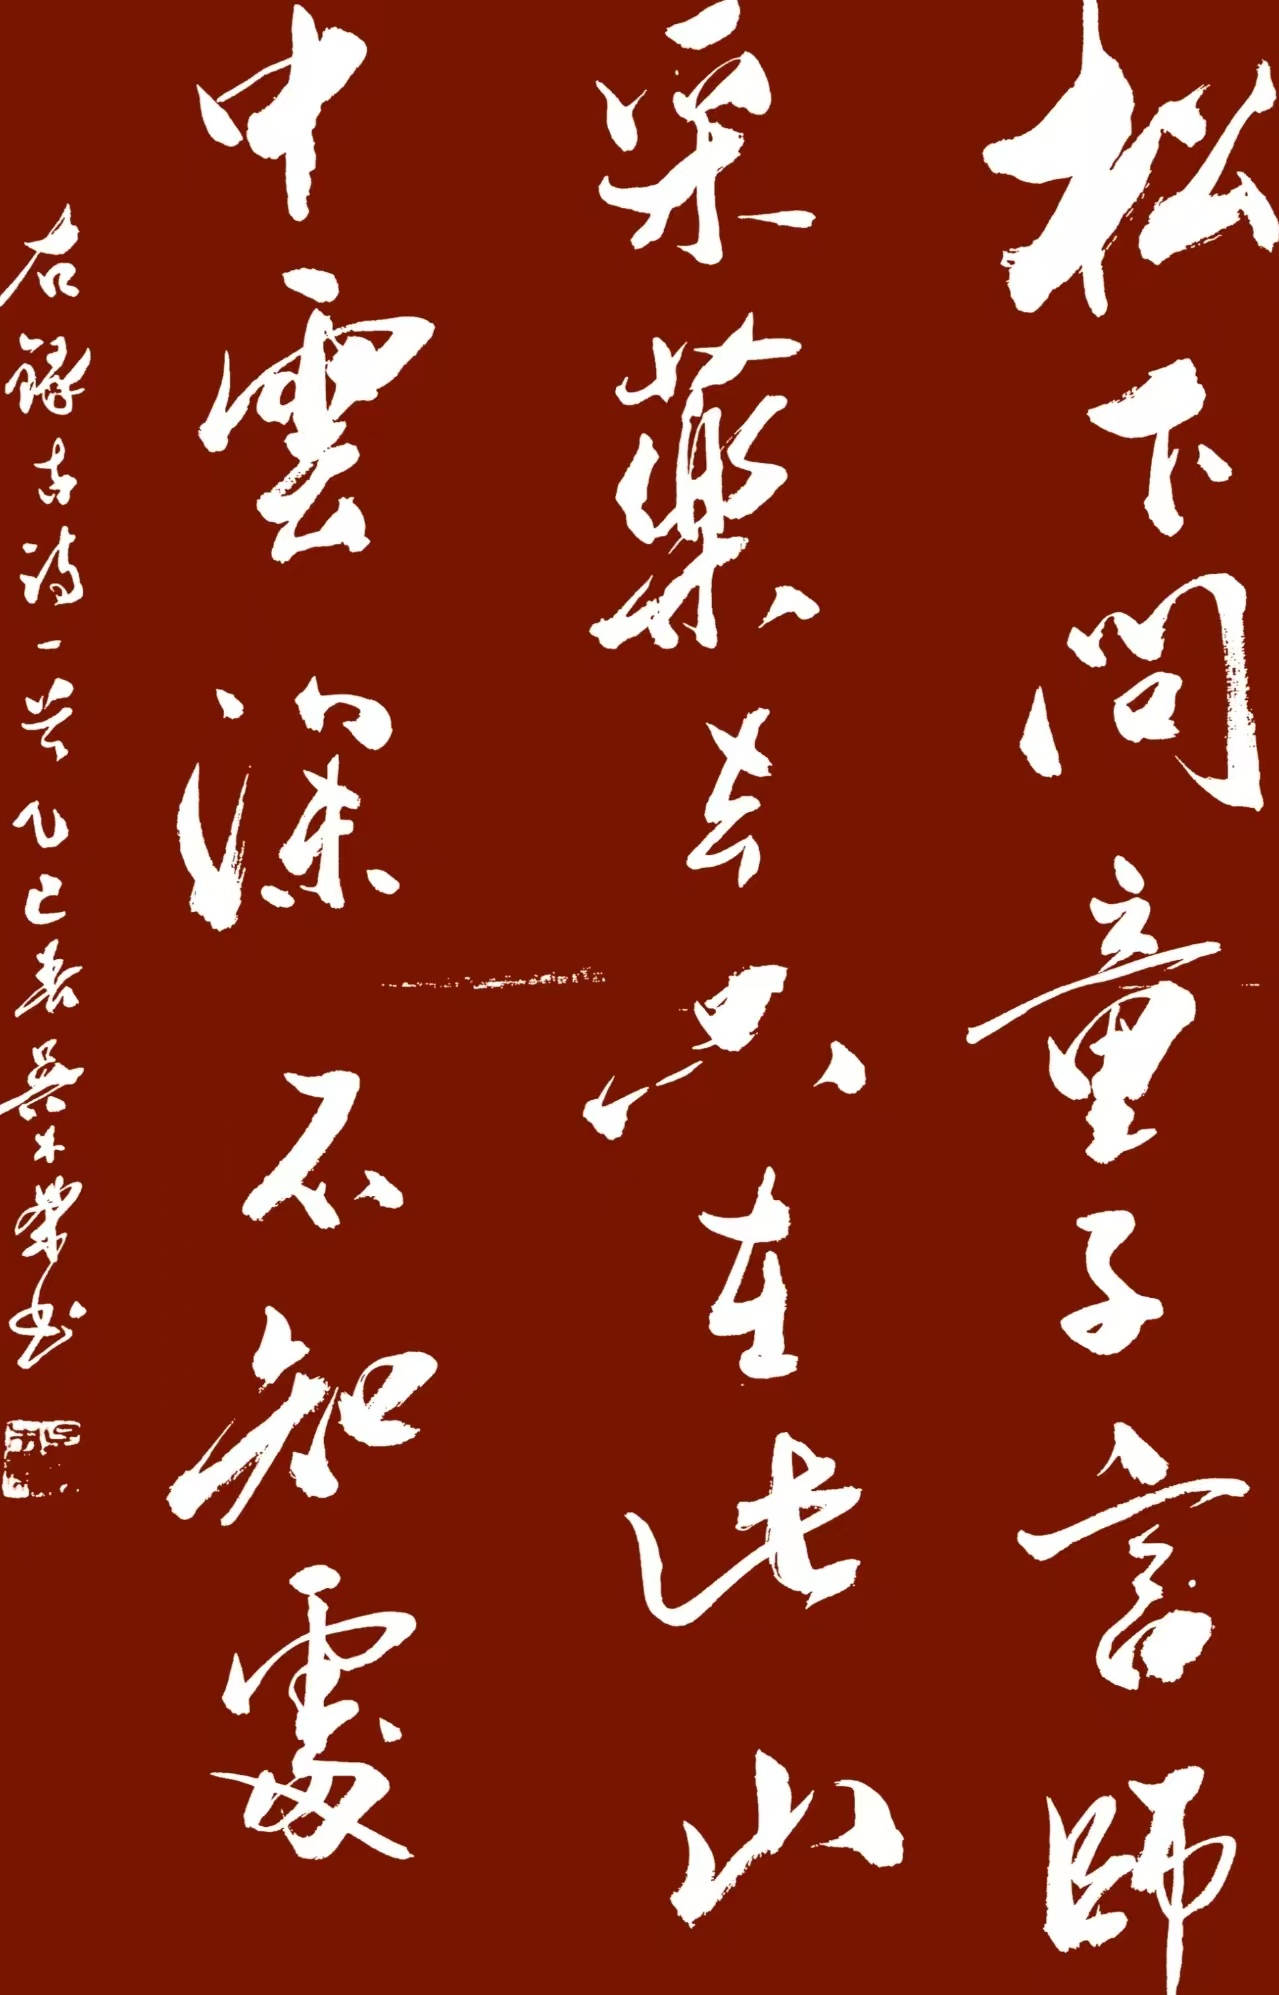 松下问童子言師
采藥去只在此山
中雲深不知處
右録古诗一首乙巳春吴木荣书